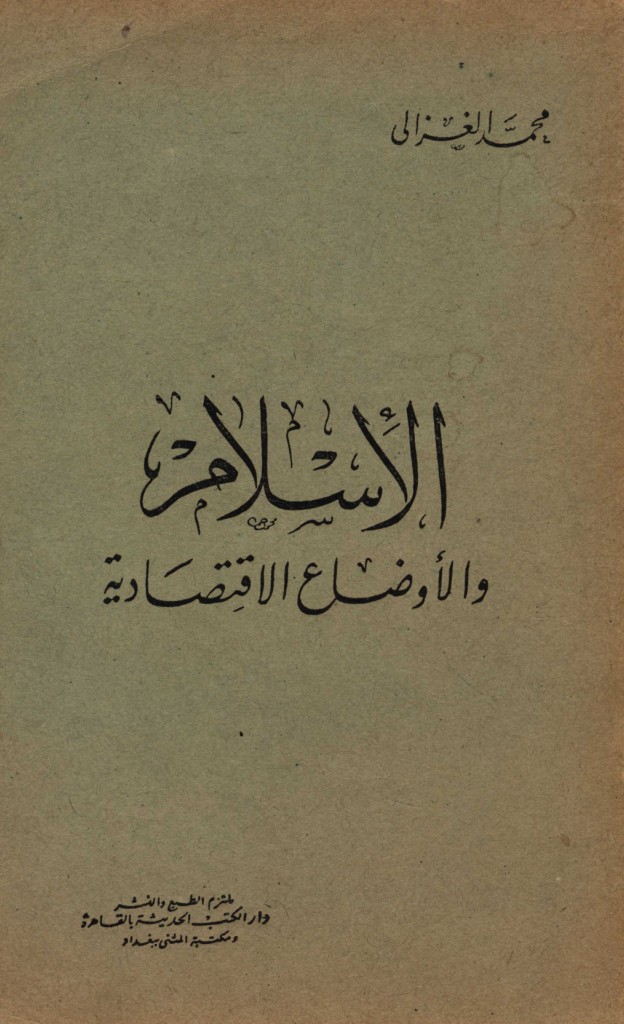 محمد الغزالى
الإسلام
والأوضاع الاقتصادية
ملتزم الطبع والنشر
دار الكتب الحديثة بالقاهرة
ومكتبة المثنى ببغداد